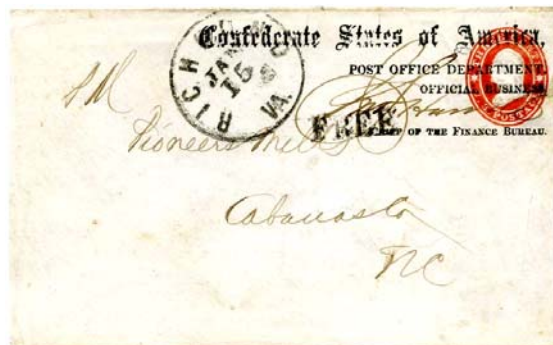 Confederate States of America.
POST OFFICE DEPARTMENT,
OFFICIAL BUSINESS
CHIEF OF THE FINANCE BUREAU.
RICHMOND
JAN
15
VA.
FREE
P.M.
Pioneer Mills
Cabarras Co
NC